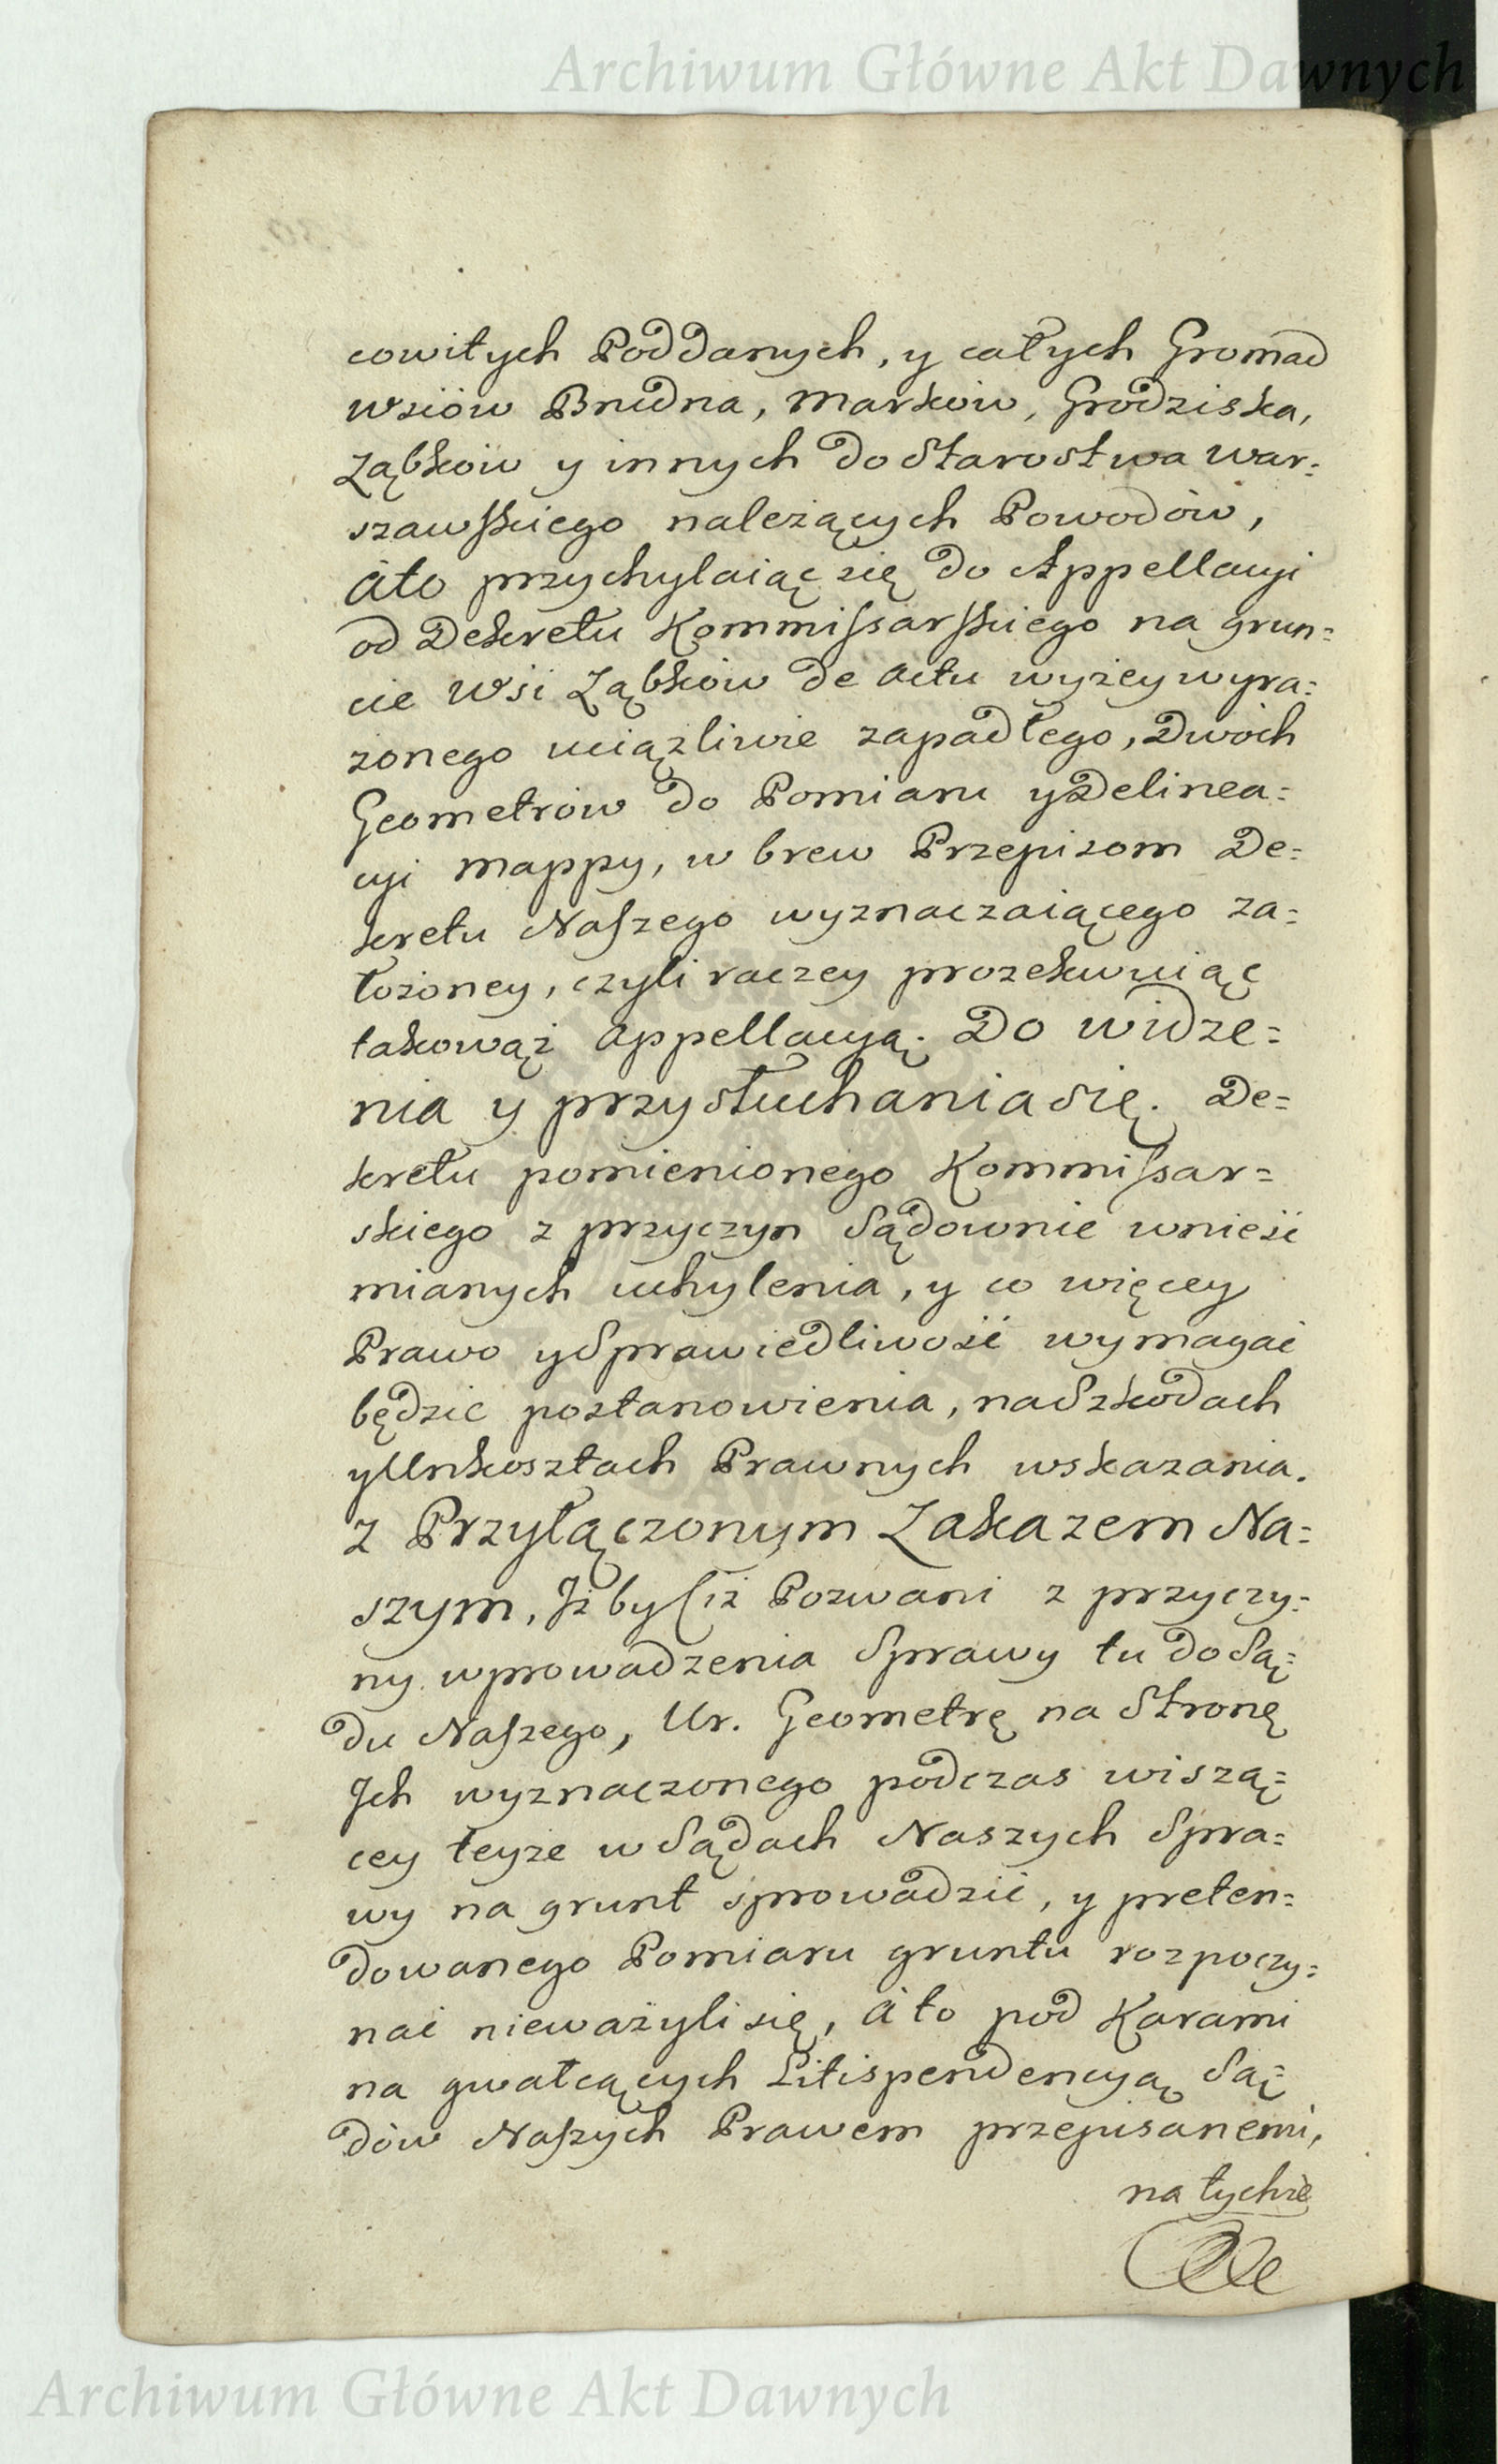 Archiwum Główne Akt Dawnych
cowitych Poddanych, y całych Gromad
wsiów Brudna, Marków, Grodziska,
Ząbków y innych do Starostwa War=
szawskiego należących Powodów,
áto przychylaiąc się do Appellacyi
od Dekretu Kommissarskiego na grun=
cie Wsi Ząbków de actu wyżey wyra=
żonego uciążliwie zapadłego, Dwóch
Geometrów do Pomiaru y Delinea=
cyi mappy, w brew Przepisom De=
kretu Naszego wyznaczaiącego za=
łożoney, czyli raczey prozekwuiąc
takowąż appellacyą. Do widze=
nia y przysłuchania się. De=
kretu pomienionego Kommissar=
skiego z przyczyn Sądownie wnieść
mianych uchylenia, y co więcey
Prawo y Sprawiedliwość wymagać
będzie postanowienia, na Szkodach
y Unkosztach Prawnych wskazania.
z Przyłączonym Zakazem Na=
szym, Jżbyście Pozwani z przyczy=
ny wprowadzenia Sprawy tu do Są=
du Naszego, Ur. Geometrę na Stronę
Jch wyznaczonego podczas wiszą=
cey teyże w Sądach Naszych Spra=
wy na grunt sprowadzić, y preten=
dowanego Pomiaru gruntu rozpoczy=
nać nieważyli się, á to pod Karami
na gwałcących Litispendencyą Są=
dów Naszych Prawem przepisanemi,
na tychże
Archiwum Główne Akt Dawnych